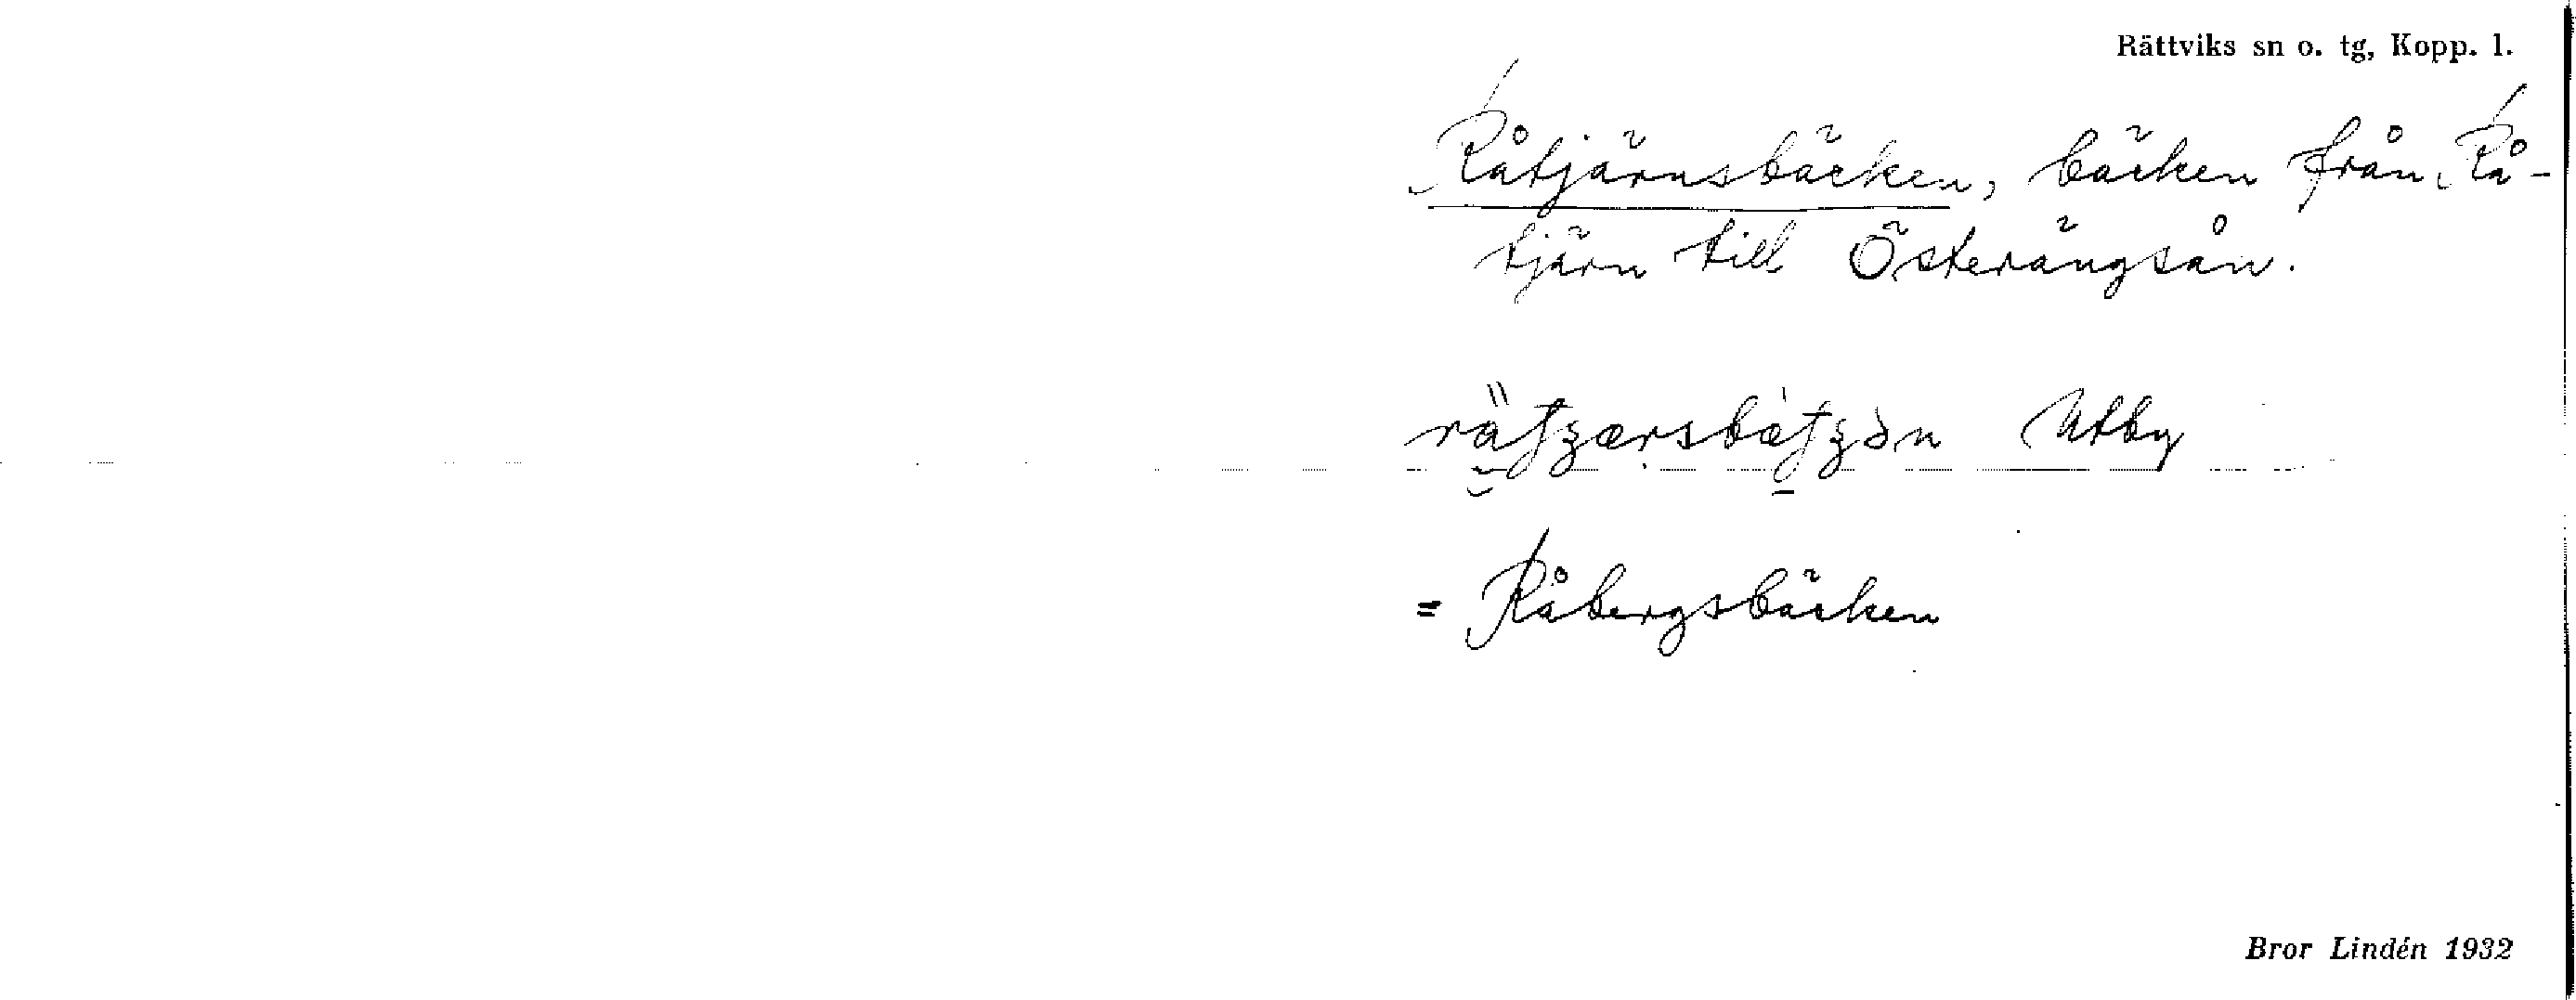 Rättviks sn o. tg, Kopp. l.
Råtjärnsbäcken, bäcken från Rå-
tjärn till Österängsån.
Utby
= Råbergsbäcken
Bror Lindén 1932